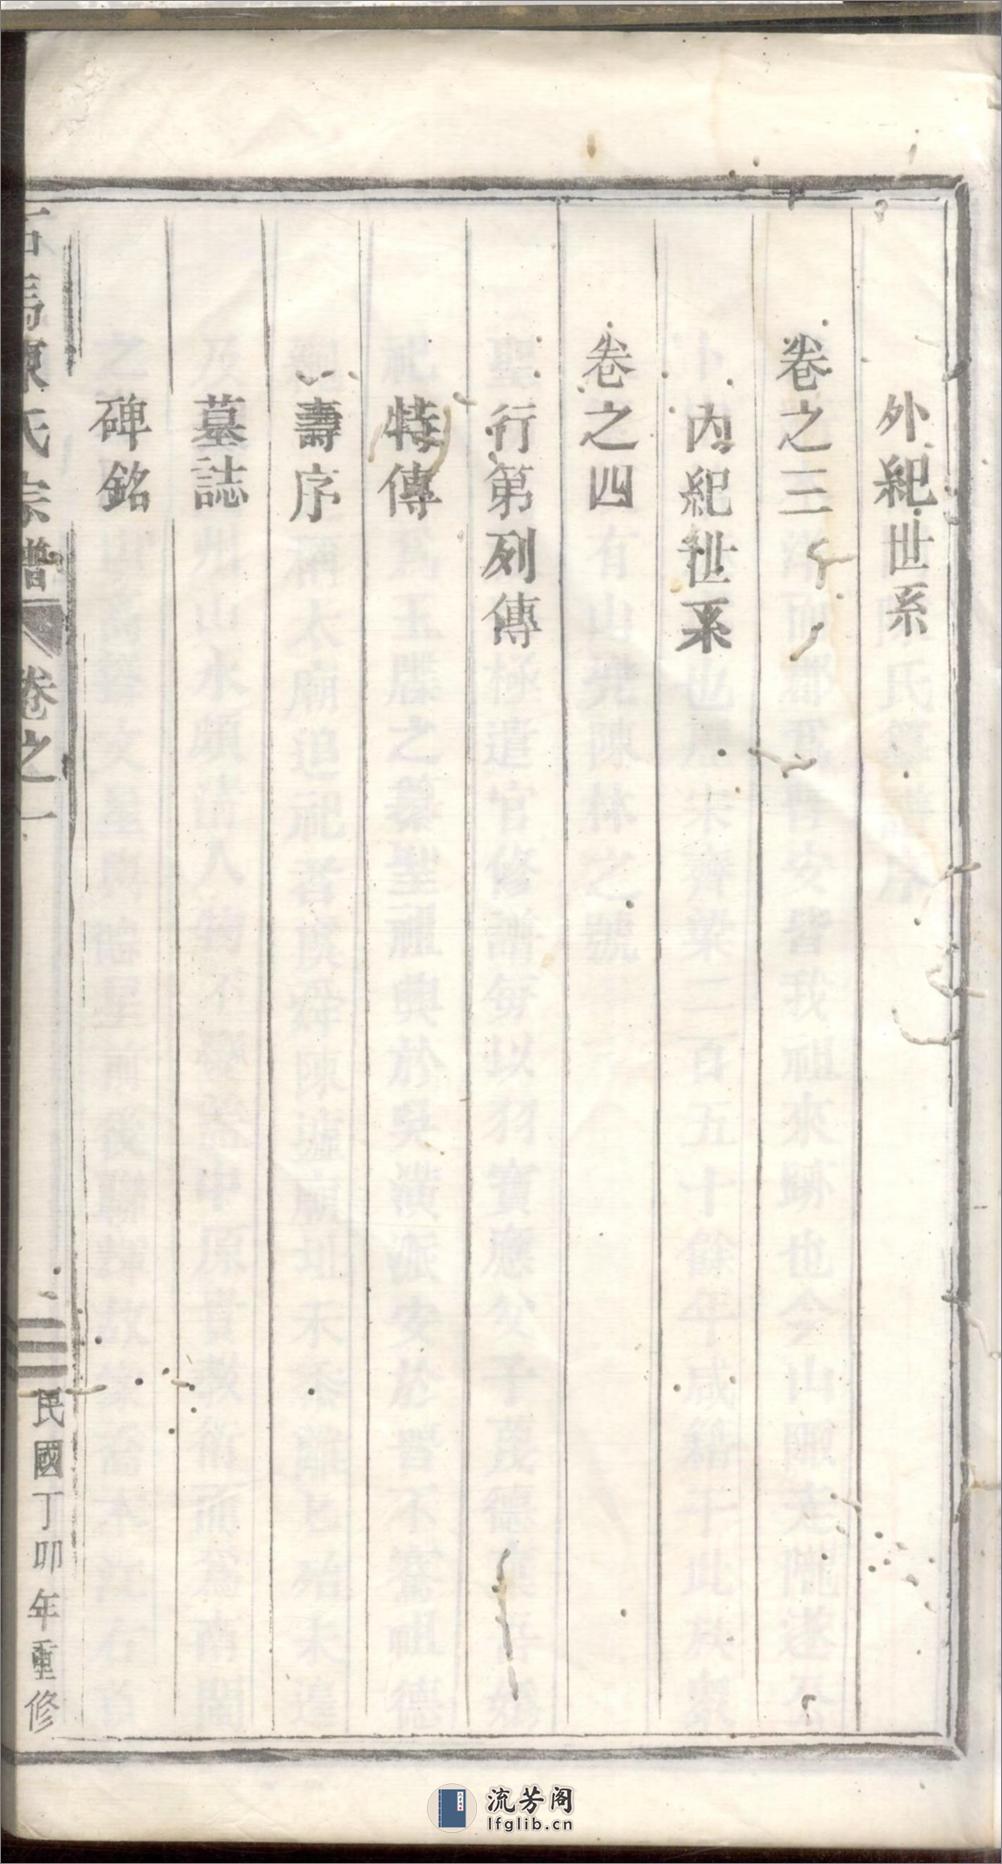 外紀世系
卷之三
內紀世系
卷之四
行第列傳
特傳
壽序
墓誌
碑銘
石馬陳氏宗譜 卷之一 二 民國丁卯年重修
流芳阁
lfglib.cn